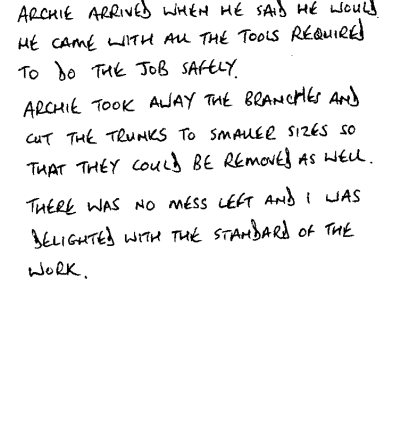 ARCHIE ARRIVED WHEN HE SAID HE WOULD.
HE CAME WITH ALL THE TOOLS REQUIRED
TO DO THE JOB SAFELY.
ARCHIE TOOK AWAY THE BRANCHES AND
CUT THE TRUNKS TO SMALLER SIZES SO
THAT THEY COULD BE REMOVED AS WELL.
THERE WAS NO MESS LEFT AND I WAS
DELIGHTED WITH THE STANDARD OF THE
WORK.